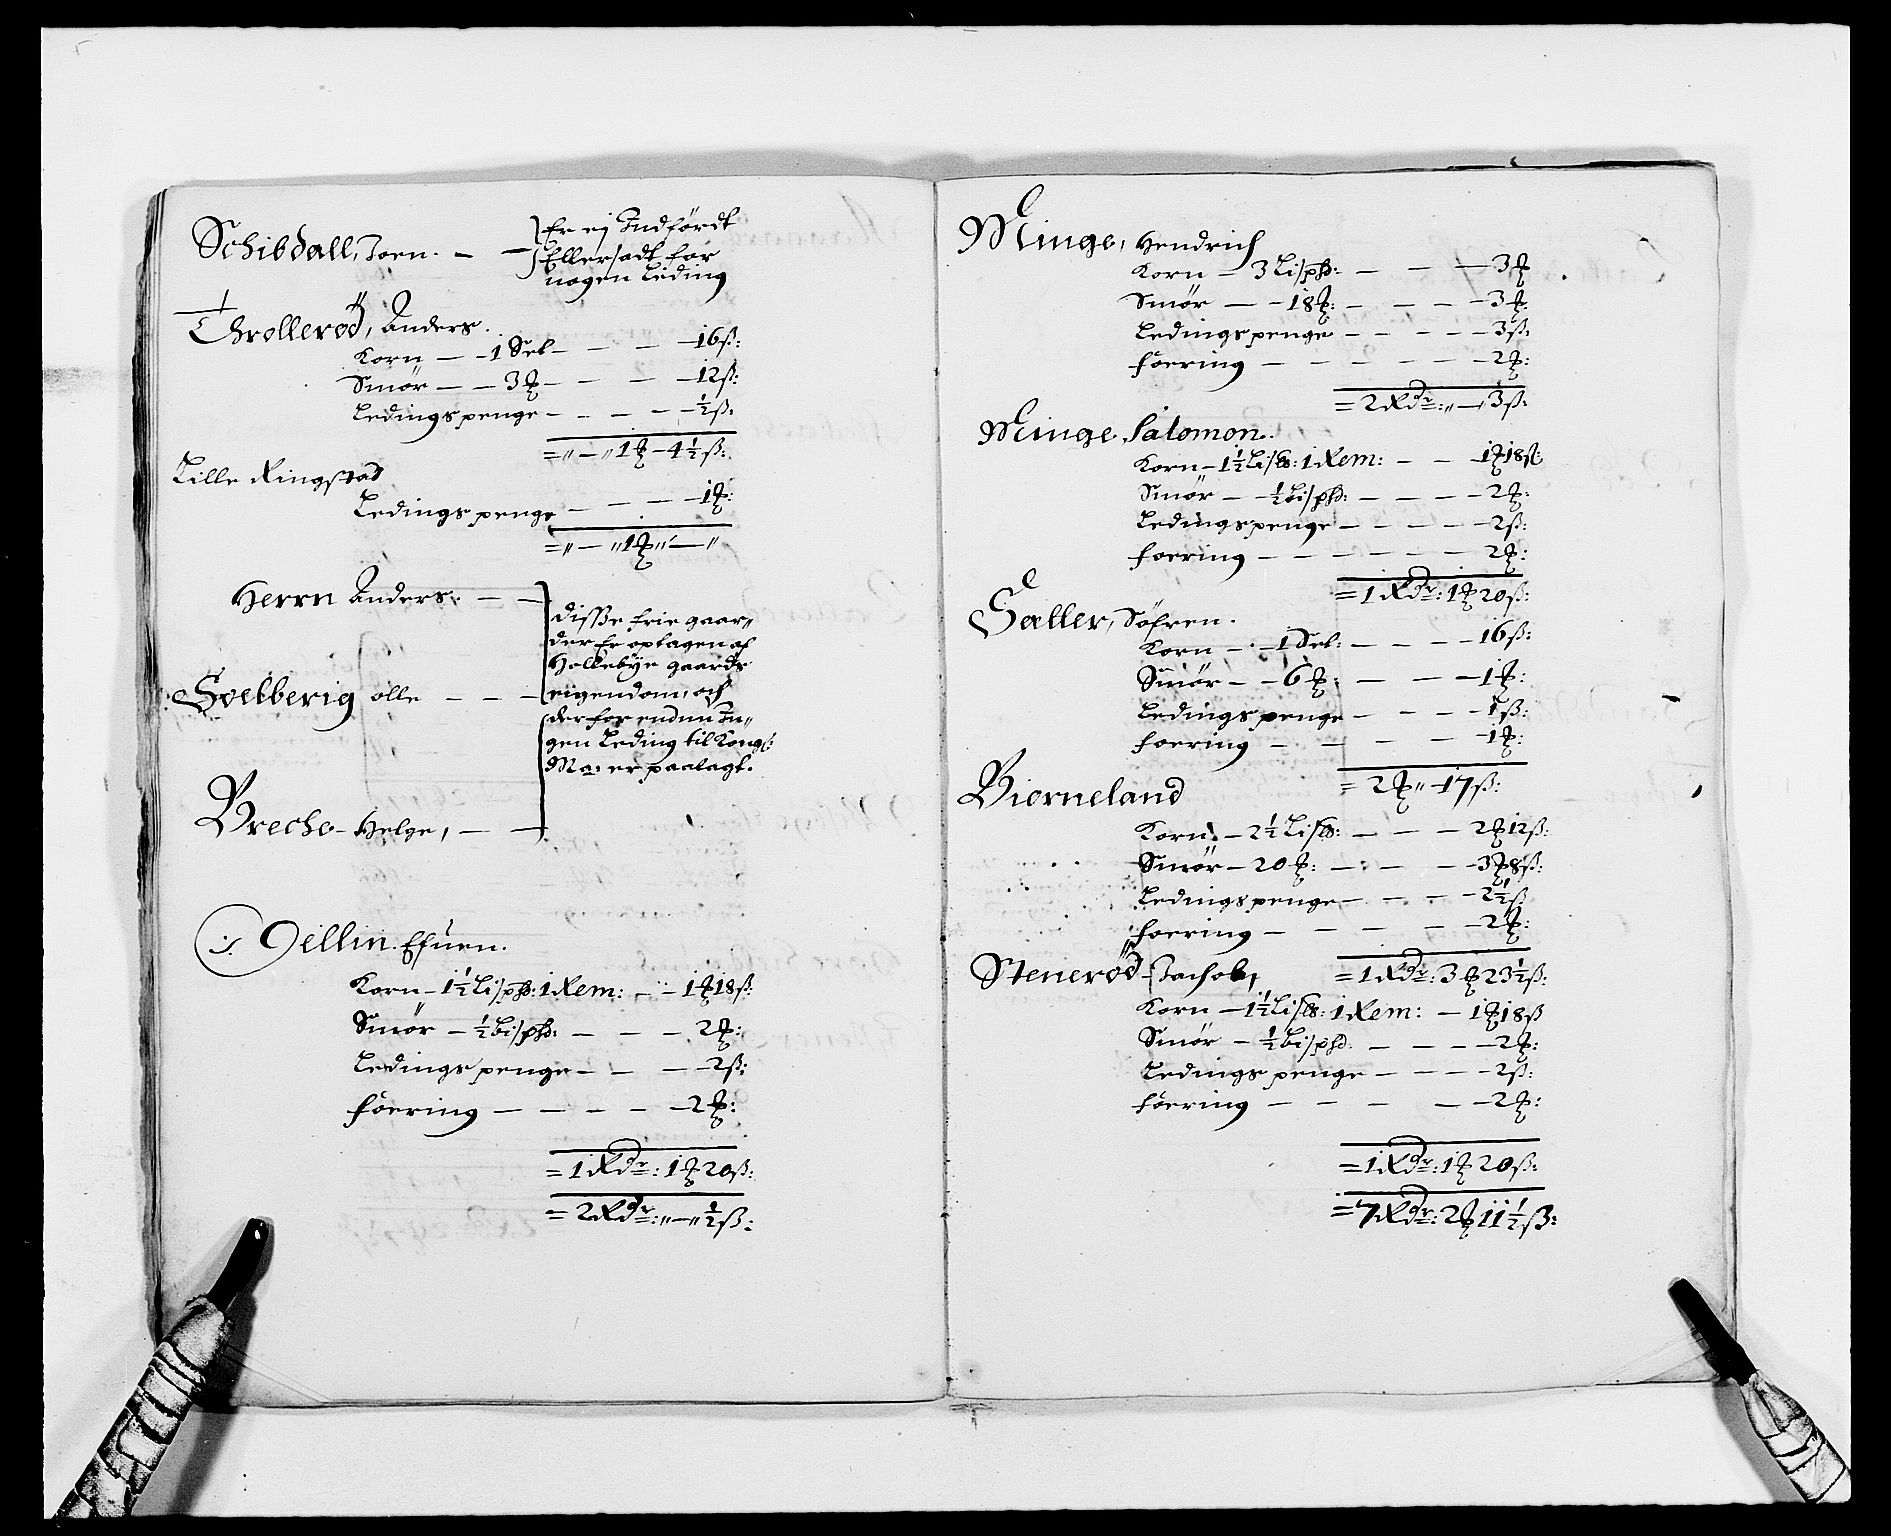 Schibdall, Joen. — — Er ej Indfördt
Ellersadt for
nogen Leding
Throlleröd, Anders.
Korn — — 1 Sel — — — — 16 ß:
Smör — — 3 ℔ — — — — 12 ß:
Ledings penge — — — — ½ ß:
= „ — „ 1 ℔ — 4½ ß:
Lille Ringstad
Ledings penge — — — — 1 ℔:
= „ — „ 1 ℔ „ — „
Herrn Anders. — —
Disse frie gaar„
der Er optagen af
Hollebÿe gaards
Soelberig olle — — — eigendom, och
derfor endnu In„
gen Leding til Kong:
Ma: er paalagt.
Breche – Helge, — —
Gellin Efuen.
Korn – 1½ Lisphd: 1 Rem: — — 1 ℔ 18 ß:
Smör — ½ Bisphd: — — — 2 ℔:
Ledings penge — — — — 2 ß:
Foering — — — — — 2 ℔:
= 1 Rdr: 1 ℔ 20 ß:
= 2 Rdr: „ — „ ½ ß:
Minge, Hendrich
Korn — 3 Lisphd: — — — 3 ℔
Smör — — 18 ℔: — — — — 3 ℔
Ledings penge — — — — — 3 ß:
Foering — — — — — — 2 ℔:
= 2 Rdr: „ — 3 ß:
Minge Salomon.
Korn — 1½ Lis℔: 1 Rem: — — 1 ℔ 18 ß:
Smör — — ½ Bisphd: — — — — 2 ℔:
Ledings penge — — — — — 2 ß:
Foering — — — — — — 2 ℔:
= 1 Rdr: 1 ℔ 20 ß:
Sæller, Söfren.
Korn — — 1 Sel: — — — — 16 ß:
Smör — — 6 ℔: — — — 1 ℔:
Ledings penge — — — — 1 ß:
Foering — — — — — 1 ℔:
= 2 ℔ „ 17 ß:
Biorneland
Korn. — 2½ Lis℔: — — — 2 ℔ 12 ß:
Smör — 20 ℔: — — — — 3 ℔ 8 ß:
Ledings penge — — — — 2½ ß
Foering — — — — — 2 ℔:
= 1 Rdr: 3 ℔ 23½ ß:
Steneröd Jachob,
Korn — 1½ Lis℔: 1 Rem: — 1 ℔ 18 ß
Smör — ½ Bisphd: — — — — 2 ℔:
Ledings penge — — — — 2 ß:
Foering — — — — — 2 ℔:
= 1 Rdr: 1 ℔ 20 ß:
= 7 Rdr: 2 ℔ 11½ ß: